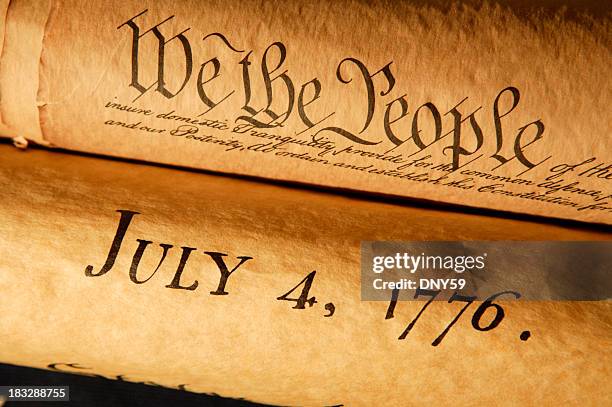 We the People of the
insure domestic Tranquility, provide for the common defence,
and our Posterity, do ordain and establish this Constitution for
July 4, 1776.
gettyimages
Credit: DNY59
183288755